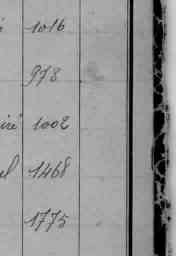 1016
973
iré 1002
el 1468
1775